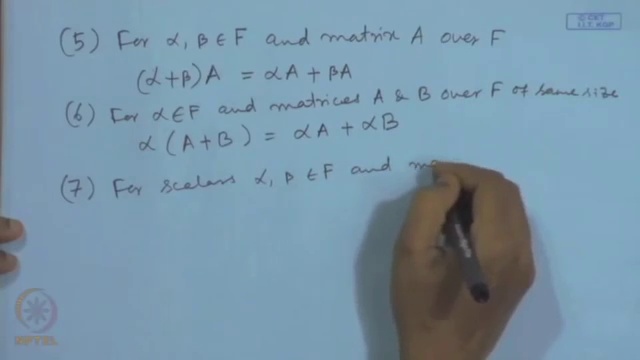 © CET
I.I.T. KGP
(5) For α, β ∈ F and matrix A over F
(α+β)A = αA + βA
(6) For α∈F and matrices A & B over F of same size
α(A+B) = αA + αB
(7) For scalars α, β ∈ F and
NPTEL